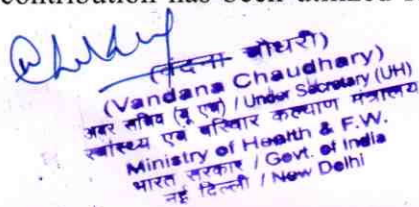 contribution has been utilized
(वंदना चौधरी)
(Vandana Chaudhary)
अवर सचिव (यू एच) / Under Secretary (UH)
स्वास्थ्य एवं परिवार कल्याण मंत्रालय
Ministry of Health & F.W.
भारत सरकार / Govt. of India
नई दिल्ली / New Delhi